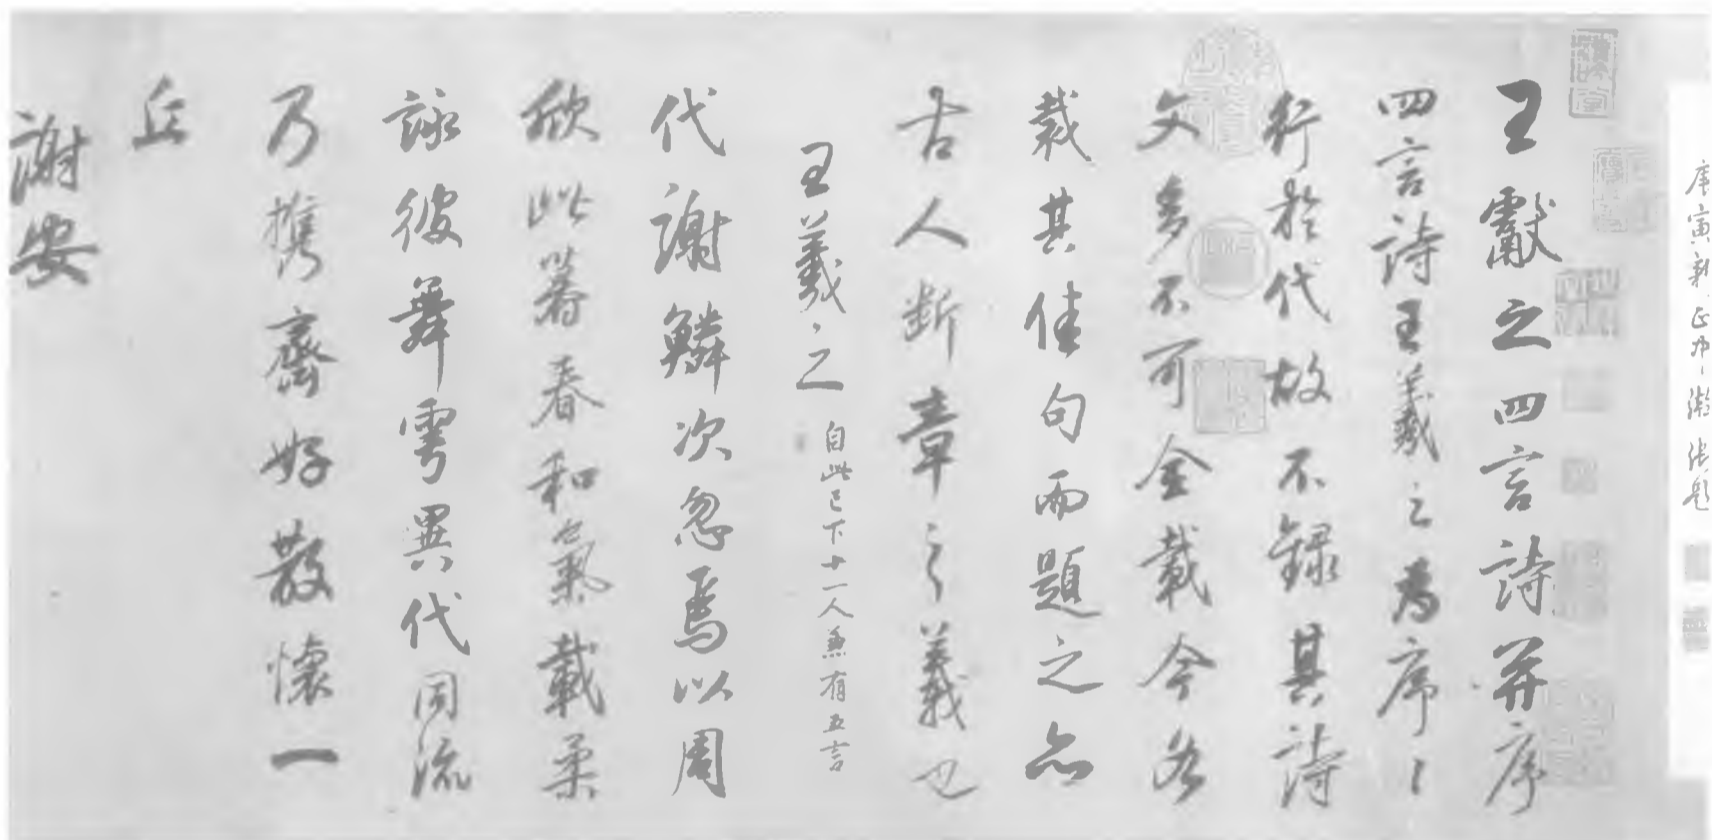 王獻之四言詩并序
四言詩王羲之為序〻
行於代故不錄其詩
文多不可全載今各
裁其佳句而題之亦
古人斷章之義也
王羲之 自此已下十一人兼有五言
代謝鱗次忽焉以周
欣此暮春和氣載柔
詠彼舞雩異代同流
乃携齊好散懷一
丘
謝安